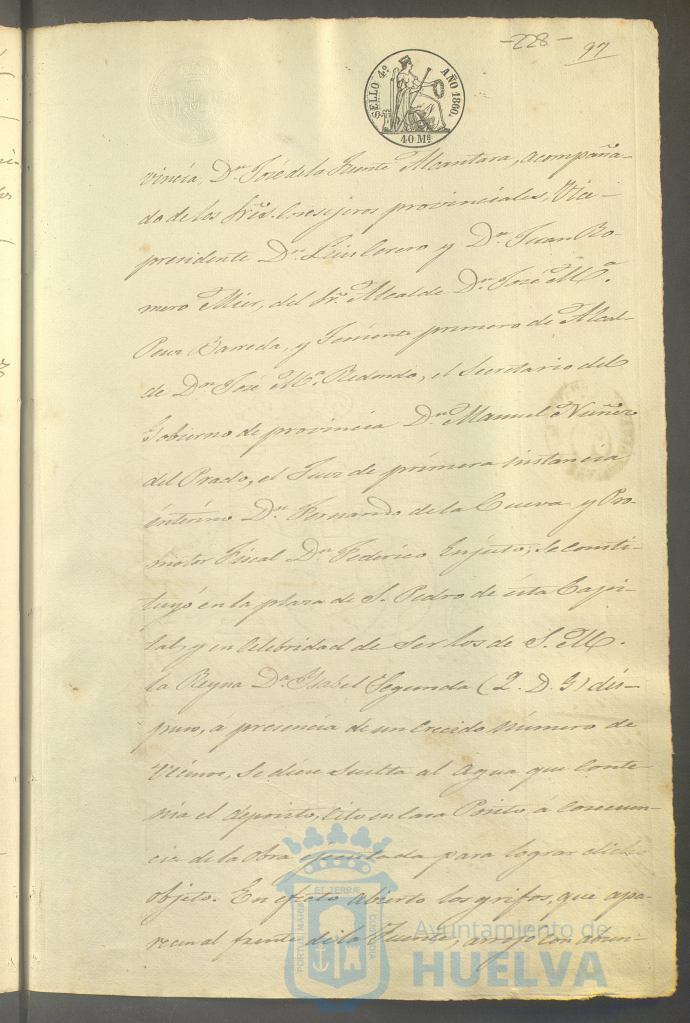 -228-
97
SELLO 4º AÑO 1860.
40 Mˢ
vincia, Dⁿ José de la Fuente Alcantara, acompaña-
do de los Sres. Consejeros provinciales, Vice-
presidente Dⁿ Luis Corero y Dⁿ Juan Ro-
mero Mier, del Sr. Alcalde Dⁿ José Mª.
Perez Barreda, y Teniente primero de Alcal-
de Dⁿ José Mª. Redondo, el Secretario del
Gobierno de provincia Dⁿ Manuel Nuñez
del Prado, el Juez de primera instancia
interino Dⁿ Fernando de la Cueva y Pro-
motor Fiscal Dⁿ Federico Enjuto; se consti-
tuyó en la plaza de S. Pedro de esta Capi-
tal, y en celebridad de ser los de S. M.
la Reyna Dª Isabel Segunda (Q. D. G) dis-
puso, á presencia de un crecido número de
vecinos, se diese suelta al agua que conte-
nia el deposito, sito en la Posito, á consecuen-
cia de la obra ejecutada para lograr dicho
objeto. En efecto abierto los grifos, que apa-
recen al frente de la Fuente, arrojo con
PORTUS MARIS ET TERRÆ CUSTODIA
Ayuntamiento de
HUELVA